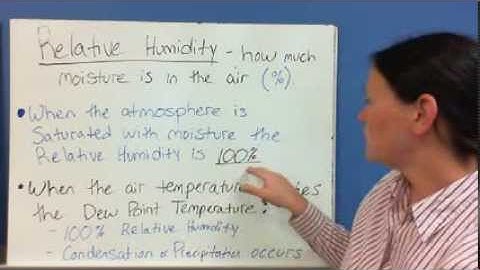 Relative Humidity - how much
moisture is in the air (%).
• When the atmosphere is
Saturated with moisture the
Relative Humidity is 100%
• When the air temperature
the Dew Point Temperature:
- 100% Relative Humidity
- Condensation or Precipitation occurs